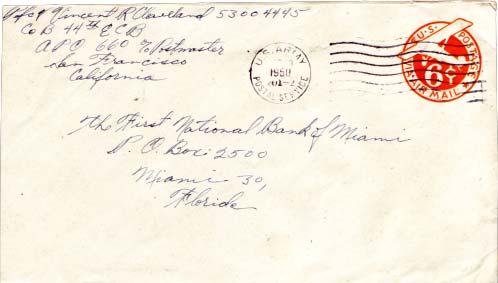 Vincent R Cleveland 53004445
Co B 44th E C B
A P O 660 % Postmaster
San Francisco
California
U.S. ARMY
1950
POSTAL SERVICE
U.S. POSTAGE
6¢
VIA AIR MAIL
The First National Bank of Miami
P. O. Box: 2500
Miami 30,
Florida